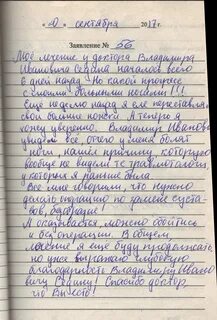 « 10 » сентября 2017 г.
Заявление № 56.
Моё лечение у доктора Владимира
Ивановича Седина началось всего
6 дней назад. Но какой прогресс
с моими больными ногами!!!
Ещё неделю назад я еле переставляла
свои больные ножки. А теперь я
хожу уверенно. Владимир Иванович
увидел всё, отчего у меня болят
ноги, нашёл причину, которую
вообще не видели те травматологи,
у которых я раньше была.
Все мне говорили, что нужно
делать операцию по замене суста-
вов,
А оказывается, можно обойтись
и без операции. В общем
лечение я ещё буду продолжать,
но уже выражаю глубокую
благодарность Владимиру Ивано-
вичу Седину! Спасибо доктор,
что Вы есть!